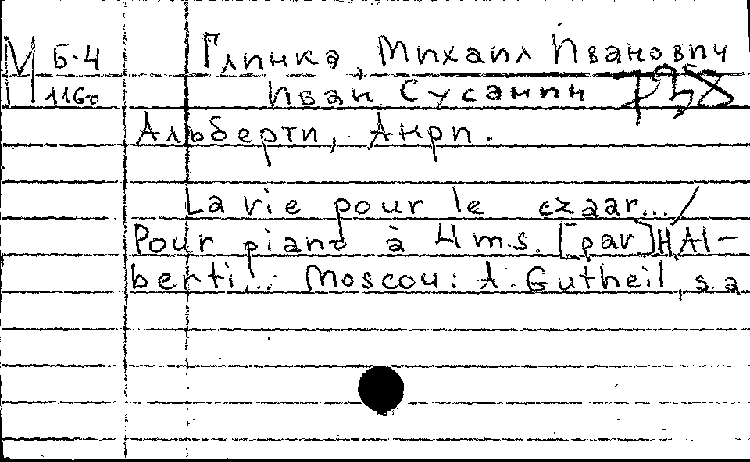 М Б-4 Глинка, Михаил Иванович
116с Иван Сусанин
Альберти, Анри.
La vie pour le czaar.../
Pour piano à 4 m.s. [par] H. Al-
berti... Moscou: A. Gutheil, s.a